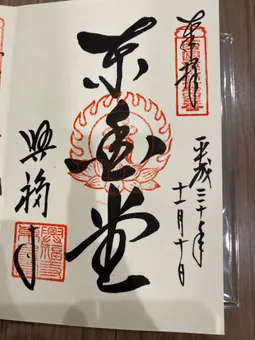 奉拝
平成三十年
十一月十日
東金堂
興福寺